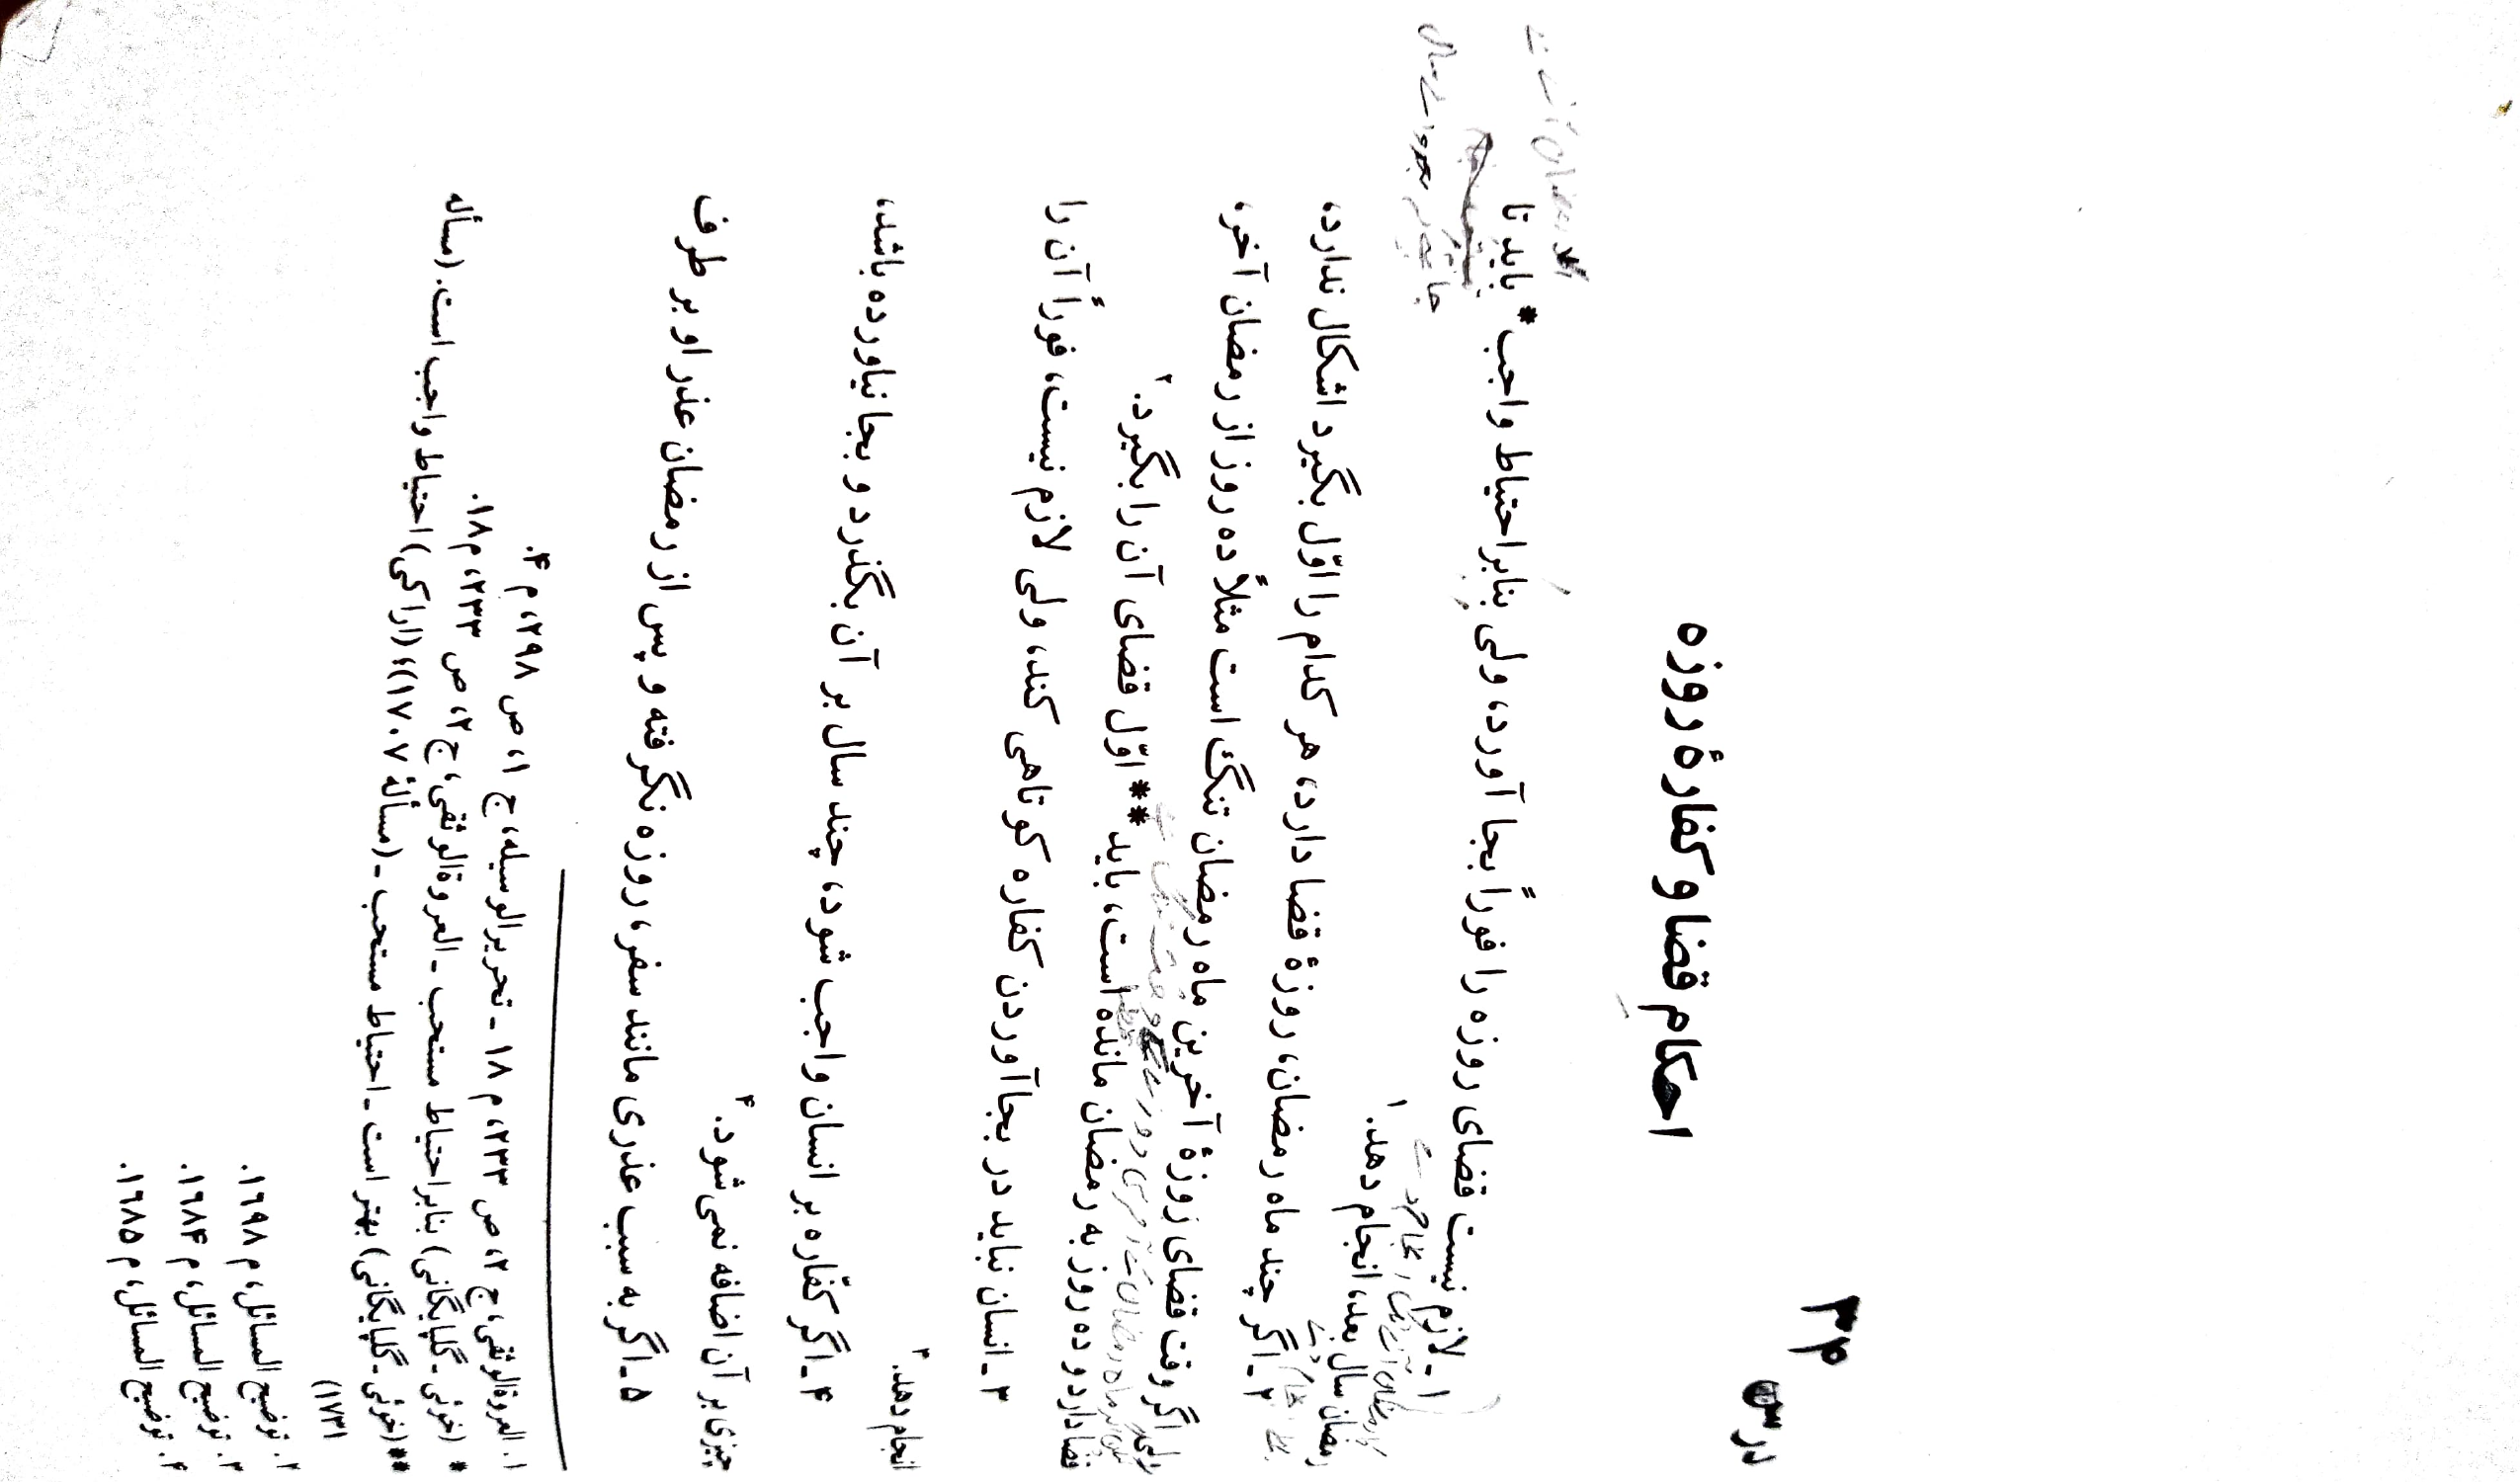 درس ۳۲
احکام قضا و کفارهٔ روزه
۱ـ لازم نیست قضای روزه را فوراً بجا آورد، ولی بنابر احتیاط واجب * باید تا
رمضان سال بعد، انجام دهد.۱
۲ـ اگر چند ماه رمضان، روزهٔ قضا دارد، هر کدام را اوّل بگیرد اشکال ندارد،
ولی اگر وقت قضای روزهٔ آخرین ماه رمضان تنگ است مثلاً ده روز از رمضان آخر،
قضا دارد و ده روز به رمضان مانده است، باید ** اوّل قضای آن را بگیرد.۲
۳ـ انسان نباید در بجا آوردن کفاره کوتاهی کند، ولی لازم نیست، فوراً آن را
انجام دهد.۳
۴ـ اگر کفّاره بر انسان واجب شود، چند سال بر آن بگذرد و بجا نیاورده باشد،
چیزی بر آن اضافه نمی شود.۴
۵ـ اگر به سبب عذری مانند سفر، روزه نگرفته و پس از رمضان عذر او بر طرف
۱. العروةالوثقی، ج ۲، ص ۲۳۳، م ۱۸ ـ تحریرالوسیله، ج ۱، ص ۲۹۸، م ۴.
* (خوئی ـ گلپایگانی) بنابر احتیاط مستحب ـ العروةالوثقی، ج ۲، ص ۲۳۳، م ۱۸.
** (خوئی ـ گلپایگانی) بهتر است ـ احتیاط مستحب ـ (مسألهٔ ۱۷۰۷)؛ (اراکی) احتیاط واجب است. (مسأله
۱۷۳۱)
۲. توضیح المسائل، م ۱۶۹۸.
۳. توضیح المسائل، م ۱۶۸۴.
۴. توضیح المسائل، م ۱۶۸۵.